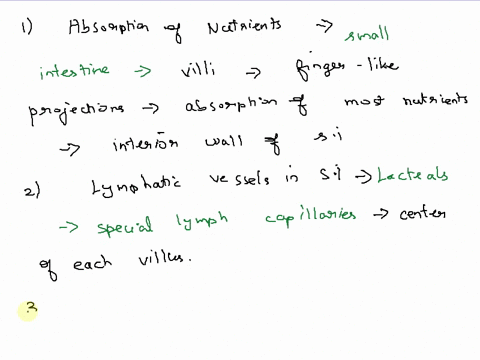 1) Absorption of Nutrients → small
intestine → villi → finger-like
projections → absorption of most nutrients
→ interior wall of s.i
2) Lymphatic vessels in S.i → Lacteals
→ special lymph capillaries → center
of each villus.
3